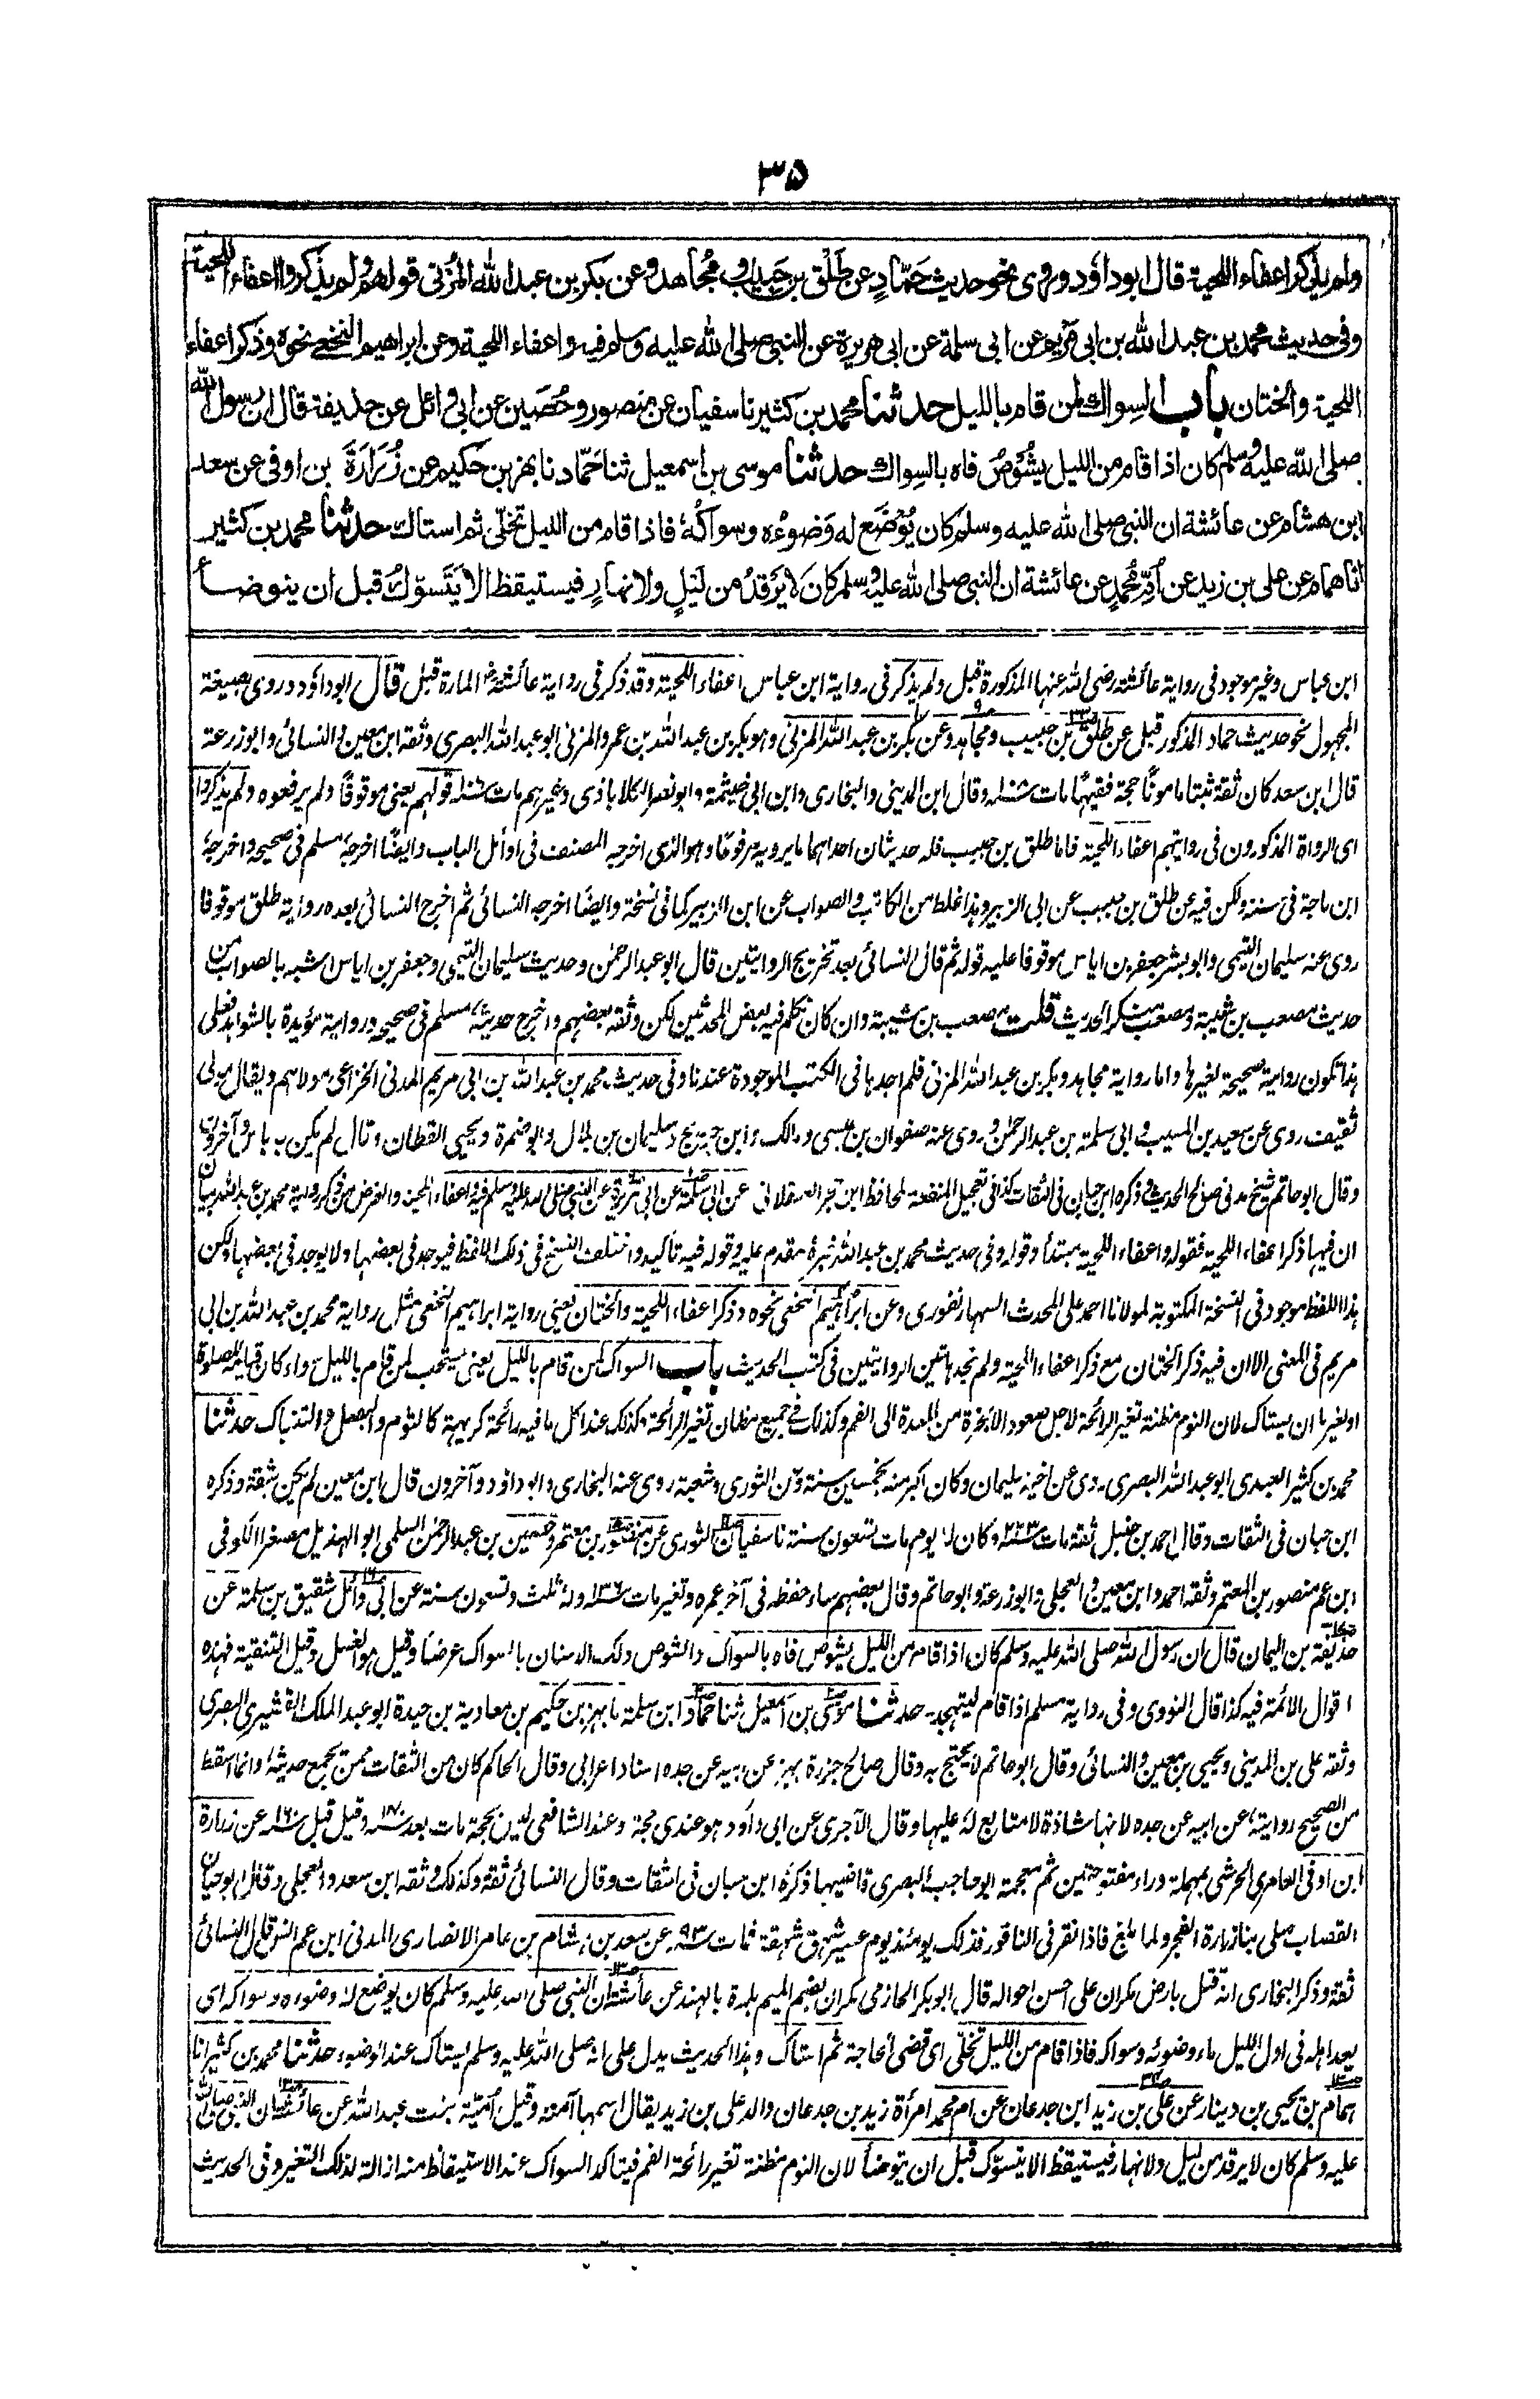 ٣٥
ولم يذكر اعفاء اللحية قال ابو داؤد وروى نحو حديث حمّادٍ عن طَلْق بن حبيب ومُجاهد وعن بكر بن عبد الله المُزني قولهم ولم يذكروا اعفاء اللحية
وفى حديث محمد بن عبد الله بن ابى مريم عن ابى سلمة عن ابى هريرة عن النبى صلى الله عليه وسلم فيه واعفاء اللحية وعن ابراهيم النخعى نحوه وذكر اعفاء
اللحية والختان باب السِواك لمن قام بالليل حدثنا محمد بن كثير نا سفيان عن منصور وحُصَين عن ابى وائل عن حذيفة قال ان رسول الله
صلى الله عليه وسلم كان اذا قام من الليل يَشُوصُ فاه بالسِواك حدثنا موسى بن اسمعيل ثنا حَمّاد نا بهز بن حكيم عن زُرَارَةَ بن اوفى عن سعد
ابن هشام عن عائشة ان النبى صلى الله عليه وسلم كان يُوْضَع له وَضوءُه وسواكُهُ فاذا قام من الليل تخلّى ثم استاك حدثنا محمد بن كثير
انا همام عن على بن زيد عن اُمِّ مُحمدٍ عن عائشة ان النبى صلى الله عليه وسلم كان لا يَرْقدُ من لَيْلٍ ولا نهارٍ فيستيقظ الا يَتَسوّك قبل ان يتوضأ
ابن عباس وغير موجود فى رواية عائشة رضى الله عنها المذكورة قبل ولم يذكر فى رواية ابن عباس اعفاء اللحية وقد ذكر فى رواية عائشة المارة قبل قال ابو داؤد وروى بصيغة
المجهول نحو حديث حماد المذكور قبل عن طلق بن حبيب ومجاهد وعن بكر بن عبد الله المزنى وهو بكر بن عبد الله بن عمرو المزنى ابو عبد الله البصرى وثقه ابن معين والنسائى وابو زرعة
قال بن سعد كان ثقة ثبتا مامونًا حجة فقيهًا مات وقال ابن المدينى والبخارى وابن ابى خيثمة وابو نصر الكلاباذى وغيرهم مات قولهم يعنى موقوفًا ولم يرفعوه ولم يذكروا
اى الرواة المذكورون فى روايتهم اعفاء اللحية فاما طلق بن حبيب فله حديثان احداهما ما يرويه مرفوعًا وهو الذى اخرجه المصنف فى اوائل الباب وايضًا اخرجه مسلم فى صحيحه واخرجه
ابن ماجة فى سننه ولكن فيه عن طلق بن حبيب عن ابى الزبير وهذا غلط من الكاتب والصواب عن ابن الزبير كما فى نسخة وايضًا اخرجه النسائى ثم اخرج النسائى بعده رواية طلق موقوفا
روى عنه سليمان التيمى وابو بشر جعفر بن اياس موقوفا عليه قوله ثم قال النسائى بعد تخريج الروايتين قال ابو عبد الرحمٰن وحديث سليمان التيمى وجعفر بن اياس اشبه بالصواب من
حديث مصعب بن شيبة ومصعب منكر الحديث قلت مصعب بن شيبة وان كان تكلم فيه بعض المحدثين لكن وثقه بعضهم واخرج حديثه مسلم فى صحيحه وروايته مؤيدة بالشواهد فعلى
هذا تكون روايته صحيحة لغيرها واما رواية مجاهد وبكر بن عبد الله المزنى فلم اجدها فى الكتب الموجودة عندنا وفى حديث محمد بن عبد الله بن ابى مريم المدنى الخزاعى مولاهم ويقال مولى
ثقيف روى عن سعيد بن المسيب وابى سلمة بن عبد الرحمٰن وروى عنه صفوان بن عيسى ومالك وابن جريج وسليمان بن بلال وابو ضمرة ويحيى القطان وقال لم يكن به باس وآخرون
وقال ابو حاتم شيخ مدنى صالح الحديث وذكره ابن حبان فى الثقات كذا فى تعجيل المنفعة للحافظ ابن حجر العسقلانى عن ابى سلمة عن ابى هريرة عن النبى صلى الله عليه وسلم فيه اعفاء اللحية والغرض من ذكر رواية محمد بن عبد الله بيان
ان فيها ذكر اعفاء اللحية فقوله واعفاء اللحية مبتدأ وقوله وفى حديث محمد بن عبد الله خبره مقدم عليه وقوله فيه تأكيد واختلف النسخ فى ذلك اللفظ فيوجد فى بعضها ولا يوجد فى بعضها ولكن
هذا اللفظ موجود فى النسخة المكتوبة لمولانا احمد على المحدث السهارنفورى وعن ابراهيم النخعى نحوه وذكر اعفاء اللحية والختان يعنى رواية ابراهيم النخعى مثل رواية محمد بن عبد الله بن ابى
مريم فى المعنى الا ان فيه ذكر الختان مع ذكر اعفاء اللحية ولم نجد هاتين الروايتين فى كتب الحديث باب السواك لمن قام بالليل يعنى يستحب لمن قام بالليل سواء كان قيامه للصلوة
او لغيرها ان يستاك لان النوم مظنة تغير الرائحة لاجل صعود الابخرة من المعدة الى الفم وكذلك فى جميع مظان تغير الرائحة وكذلك عند اكل ما فيه رائحة كريهة كالثوم والبصل والتنباك حدثنا
محمد بن كثير العبدى ابو عبد الله البصرى روى عن اخيه سليمان وكان اكبر منه بخمسين سنة وعن الثورى وشعبة روى عنه البخارى وابو داؤد وآخرون قال ابن معين لم يكن بثقة وذكره
ابن حبان فى الثقات وقال احمد بن حنبل ثقة مات ٢٢٣ وكان له يوم مات تسعون سنة نا سفيان الثورى عن منصور بن معتمر وحصين بن عبد الرحمٰن السلمى ابو الهذيل مصغرا الكوفى
ابن عم منصور بن المعتمر وثقه احمد وابن معين والعجلى وابو زرعة وابو حاتم وقال بعضهم ساء حفظه فى آخر عمره وتغير مات ١٣٦ وله ثلث وتسعون سنة عن ابى وائل شقيق بن سلمة عن
حذيفة بن اليمان قال ان رسول الله صلى الله عليه وسلم كان اذا قام من الليل يشوص فاه بالسواك والشوص دلك الاسنان بالسواك عرضًا وقيل هو الغسل وقيل التنقية فهذه
اقوال الائمة فيه كذا قال النووى وفى رواية مسلم اذا قام ليتهجد حدثنا موسى بن اسمعيل ثنا حماد ابن سلمة نا بهز بن حكيم بن معاوية بن حيدة ابو عبد الملك القشيرى البصرى
وثقه على بن المدينى ويحيى بن معين والنسائى وقال ابو حاتم لا يحتج به وقال صالح جزرة بهز عن ابيه عن جده اسناد اعرابى وقال الحاكم كان من الثقات ممن يجمع حديثه وانما اسقط
من الصحيح روايته عن ابيه عن جده لانها شاذة لا متابع له عليها وقال الآجرى عن ابى داؤد هو عندى حجة وعند الشافعى ليس بحجة مات بعد وقيل قبل ١٦٠ عن زرارة
ابن اوفى العامرى الحرشى بمهملة وراء مفتوحتين ثم معجمة ابو حاجب البصرى قاضيها ذكره ابن حبان فى الثقات وقال النسائى ثقة وكذلك وثقه ابن سعد والعجلى وقال ابو حبان
القصاب صلى بنا زرارة الفجر ولما بلغ فاذا نقر فى الناقور فذلك يومئذ يوم عسير شهق شهقة فمات ٩٣ عن سعد بن هشام بن عامر الانصارى المدنى ابن عم انس قال النسائى
ثقة وذكر البخارى انه قتل بارض مكران على احسن احواله قال ابو بكر الحازمى مكران بضم الميم بلدة بالهند عن عائشة ان النبى صلى الله عليه وسلم كان يوضع له وضوءه وسواكه اى
يعد اهله فى اول الليل ماء وضوئه وسواكه فاذا قام من الليل تخلّى اى قضى الحاجة ثم استاك وهذا الحديث يدل على انه صلى الله عليه وسلم يستاك عند الوضوء حدثنا محمد بن كثير انا
همام بن يحيى بن دينار عن على بن زيد ابن جدعان عن ام محمد امرأة زيد بن جدعان والد على بن زيد يقال اسمها آمنة وقيل أميّة بنت عبد الله عن عائشة ان النبى صلى الله
عليه وسلم كان لا يرقد من ليل ولا نهار فيستيقظ الا يتسوّك قبل ان يتوضأ لان النوم مظنة تغير رائحة الفم فيتاكد السواك عند الاستيقاظ منه ازالة لذلك التغير وفى الحديث